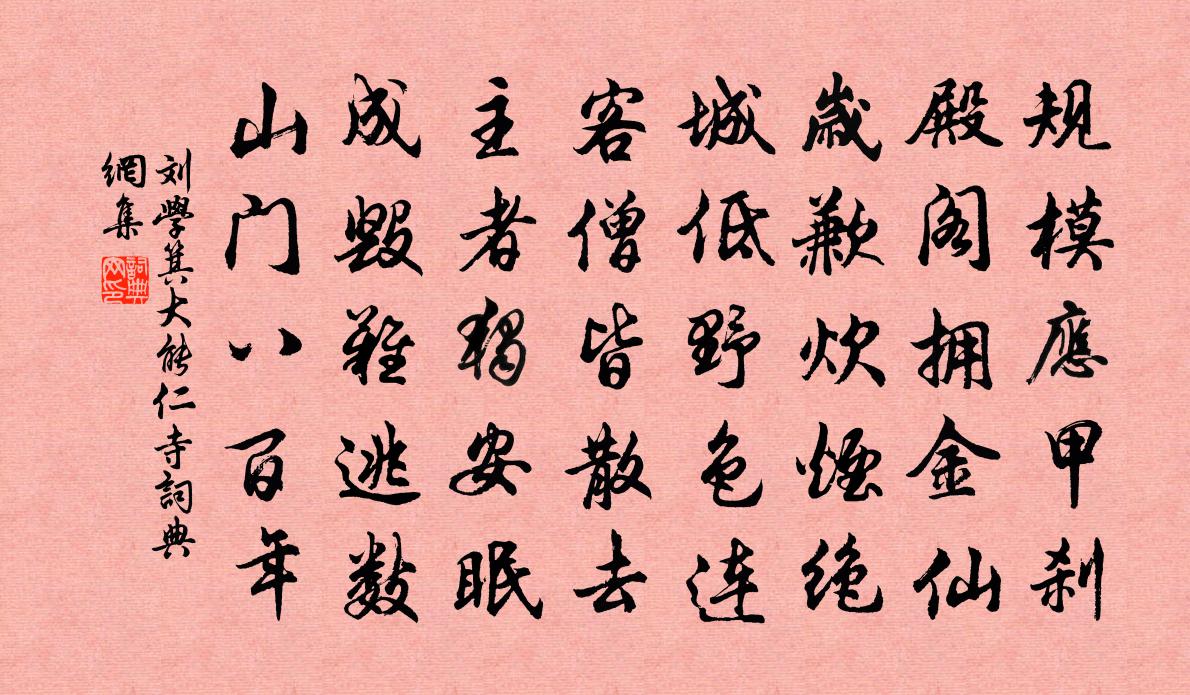 規模應甲刹
殿阁拥金仙
歲歉炊煙绝
城低野色連
客僧皆散去
主者獨安眠
成毀難逃數
山门八百年
刘學箕大能仁寺詞典
網集
詞典网印